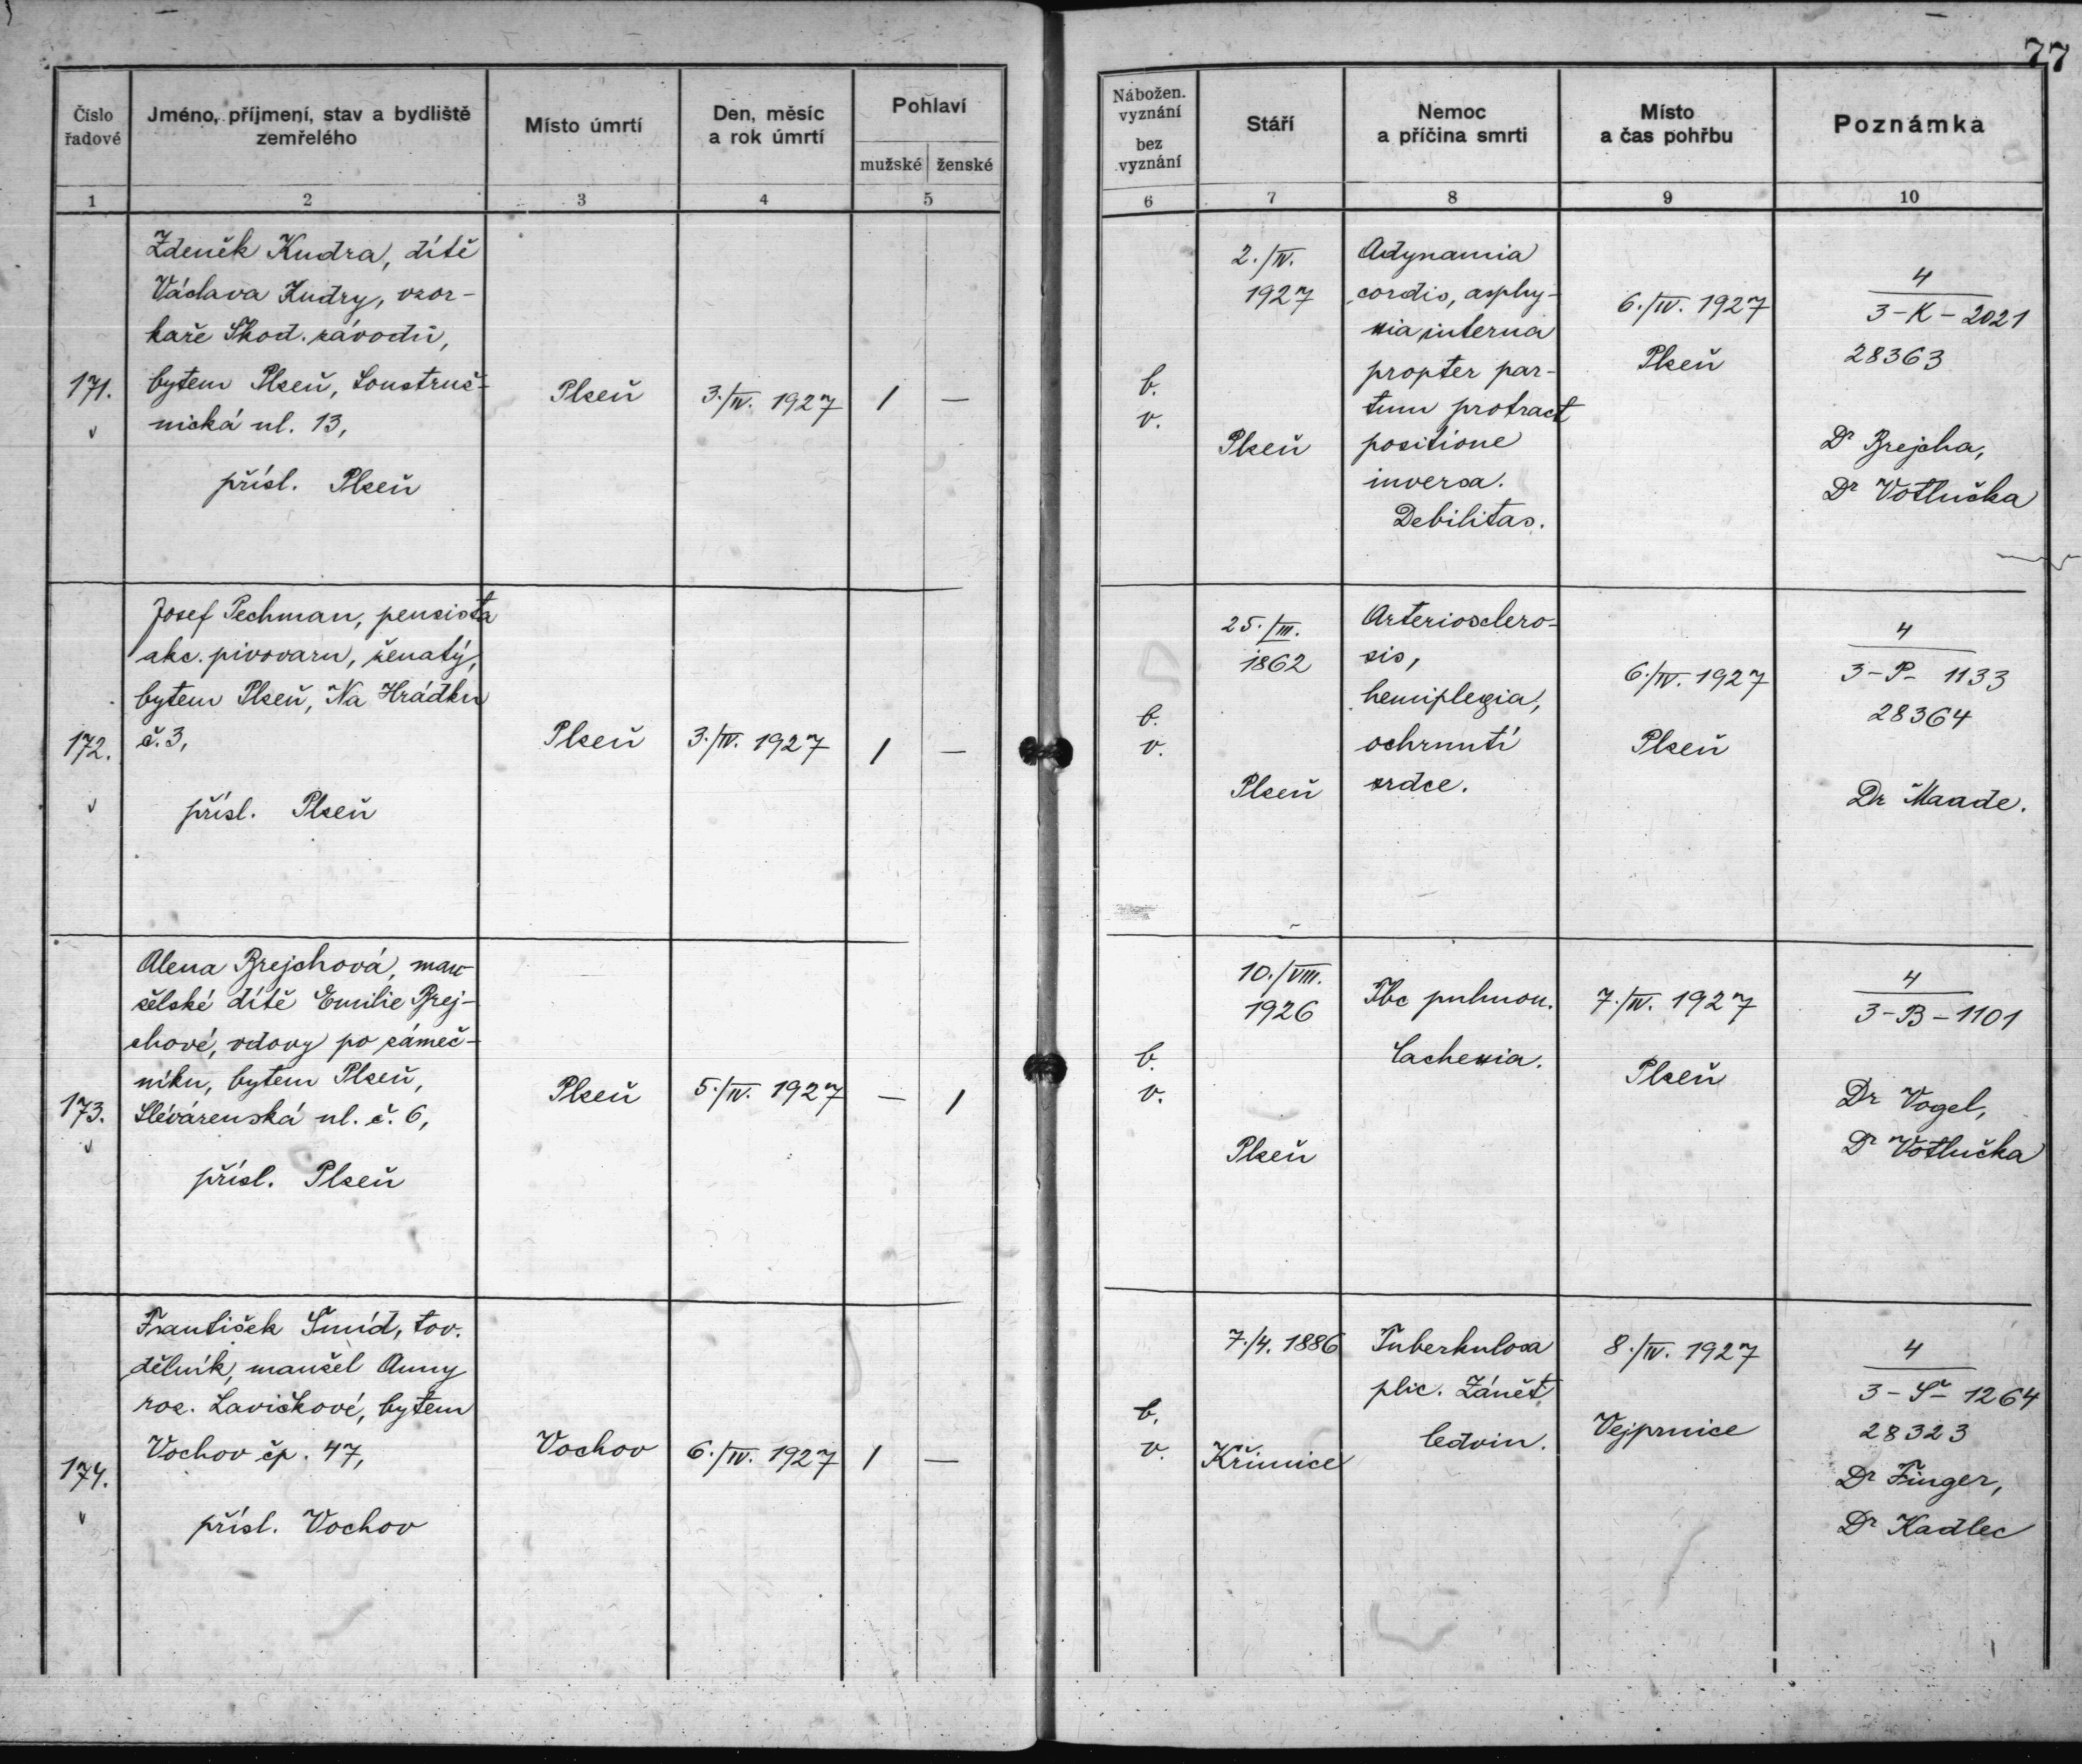 77
Číslo řadové
Jméno, příjmení, stav a bydliště zemřelého
Místo úmrtí
Den, měsíc a rok úmrtí
Pohlaví
mužské
ženské
Nábožen. vyznání
bez vyznání
Stáří
Nemoc a příčina smrti
Místo a čas pohřbu
Poznámka
1
2
3
4
5
6
7
8
9
10
171.
Zdeněk Kudra, dítě
Václava Kudry, vzor-
kaře Škod. závodů,
bytem Plzeň, Soustruž-
nická ul. 13,
přísl. Plzeň
Plzeň
3./IV. 1927
1
—
b.
v.
2./IV.
1927
Plzeň
Adynamia
cordis, asphy-
xia interna
propter par-
tum protract
positione
inversa.
Debilitas.
6./IV. 1927
Plzeň
4
3-K-2021
28363
Dr Brejcha,
Dr Votlučka
172.
Josef Pechman, pensista
akc. pivovaru, ženatý,
bytem Plzeň, Na Hrádku
č. 3,
přísl. Plzeň
Plzeň
3./IV. 1927
1
—
b.
v.
25./III.
1862
Plzeň
Arterioslero-
sis,
hemiplegia,
ochrnutí
srdce.
6./IV. 1927
Plzeň
4
3-P- 1133
28364
Dr Maade.
173.
Alena Brejchová, man-
želské dítě Emilie Brej-
chové, vdovy po zámeč-
níku, bytem Plzeň,
Slévárenská ul. č. 6,
přísl. Plzeň
Plzeň
5./IV. 1927
—
1
b.
v.
10./VIII.
1926
Plzeň
Tbc pulmon.
Cachexia.
7./IV. 1927
Plzeň
4
3-B-1101
Dr Vogel,
Dr Votlučka
174.
František Šmíd, tov.
dělník, manžel Anny
roz. Lavičkové, bytem
Vochov čp. 47,
přísl. Vochov
Vochov
6./IV. 1927
1
—
b.
v.
7./4. 1886
Křimice
Tuberkulosa
plic. Zánět
ledvin.
8./IV. 1927
Vejprnice
4
3-Š- 1264
28323
Dr Finger,
Dr Kadlec